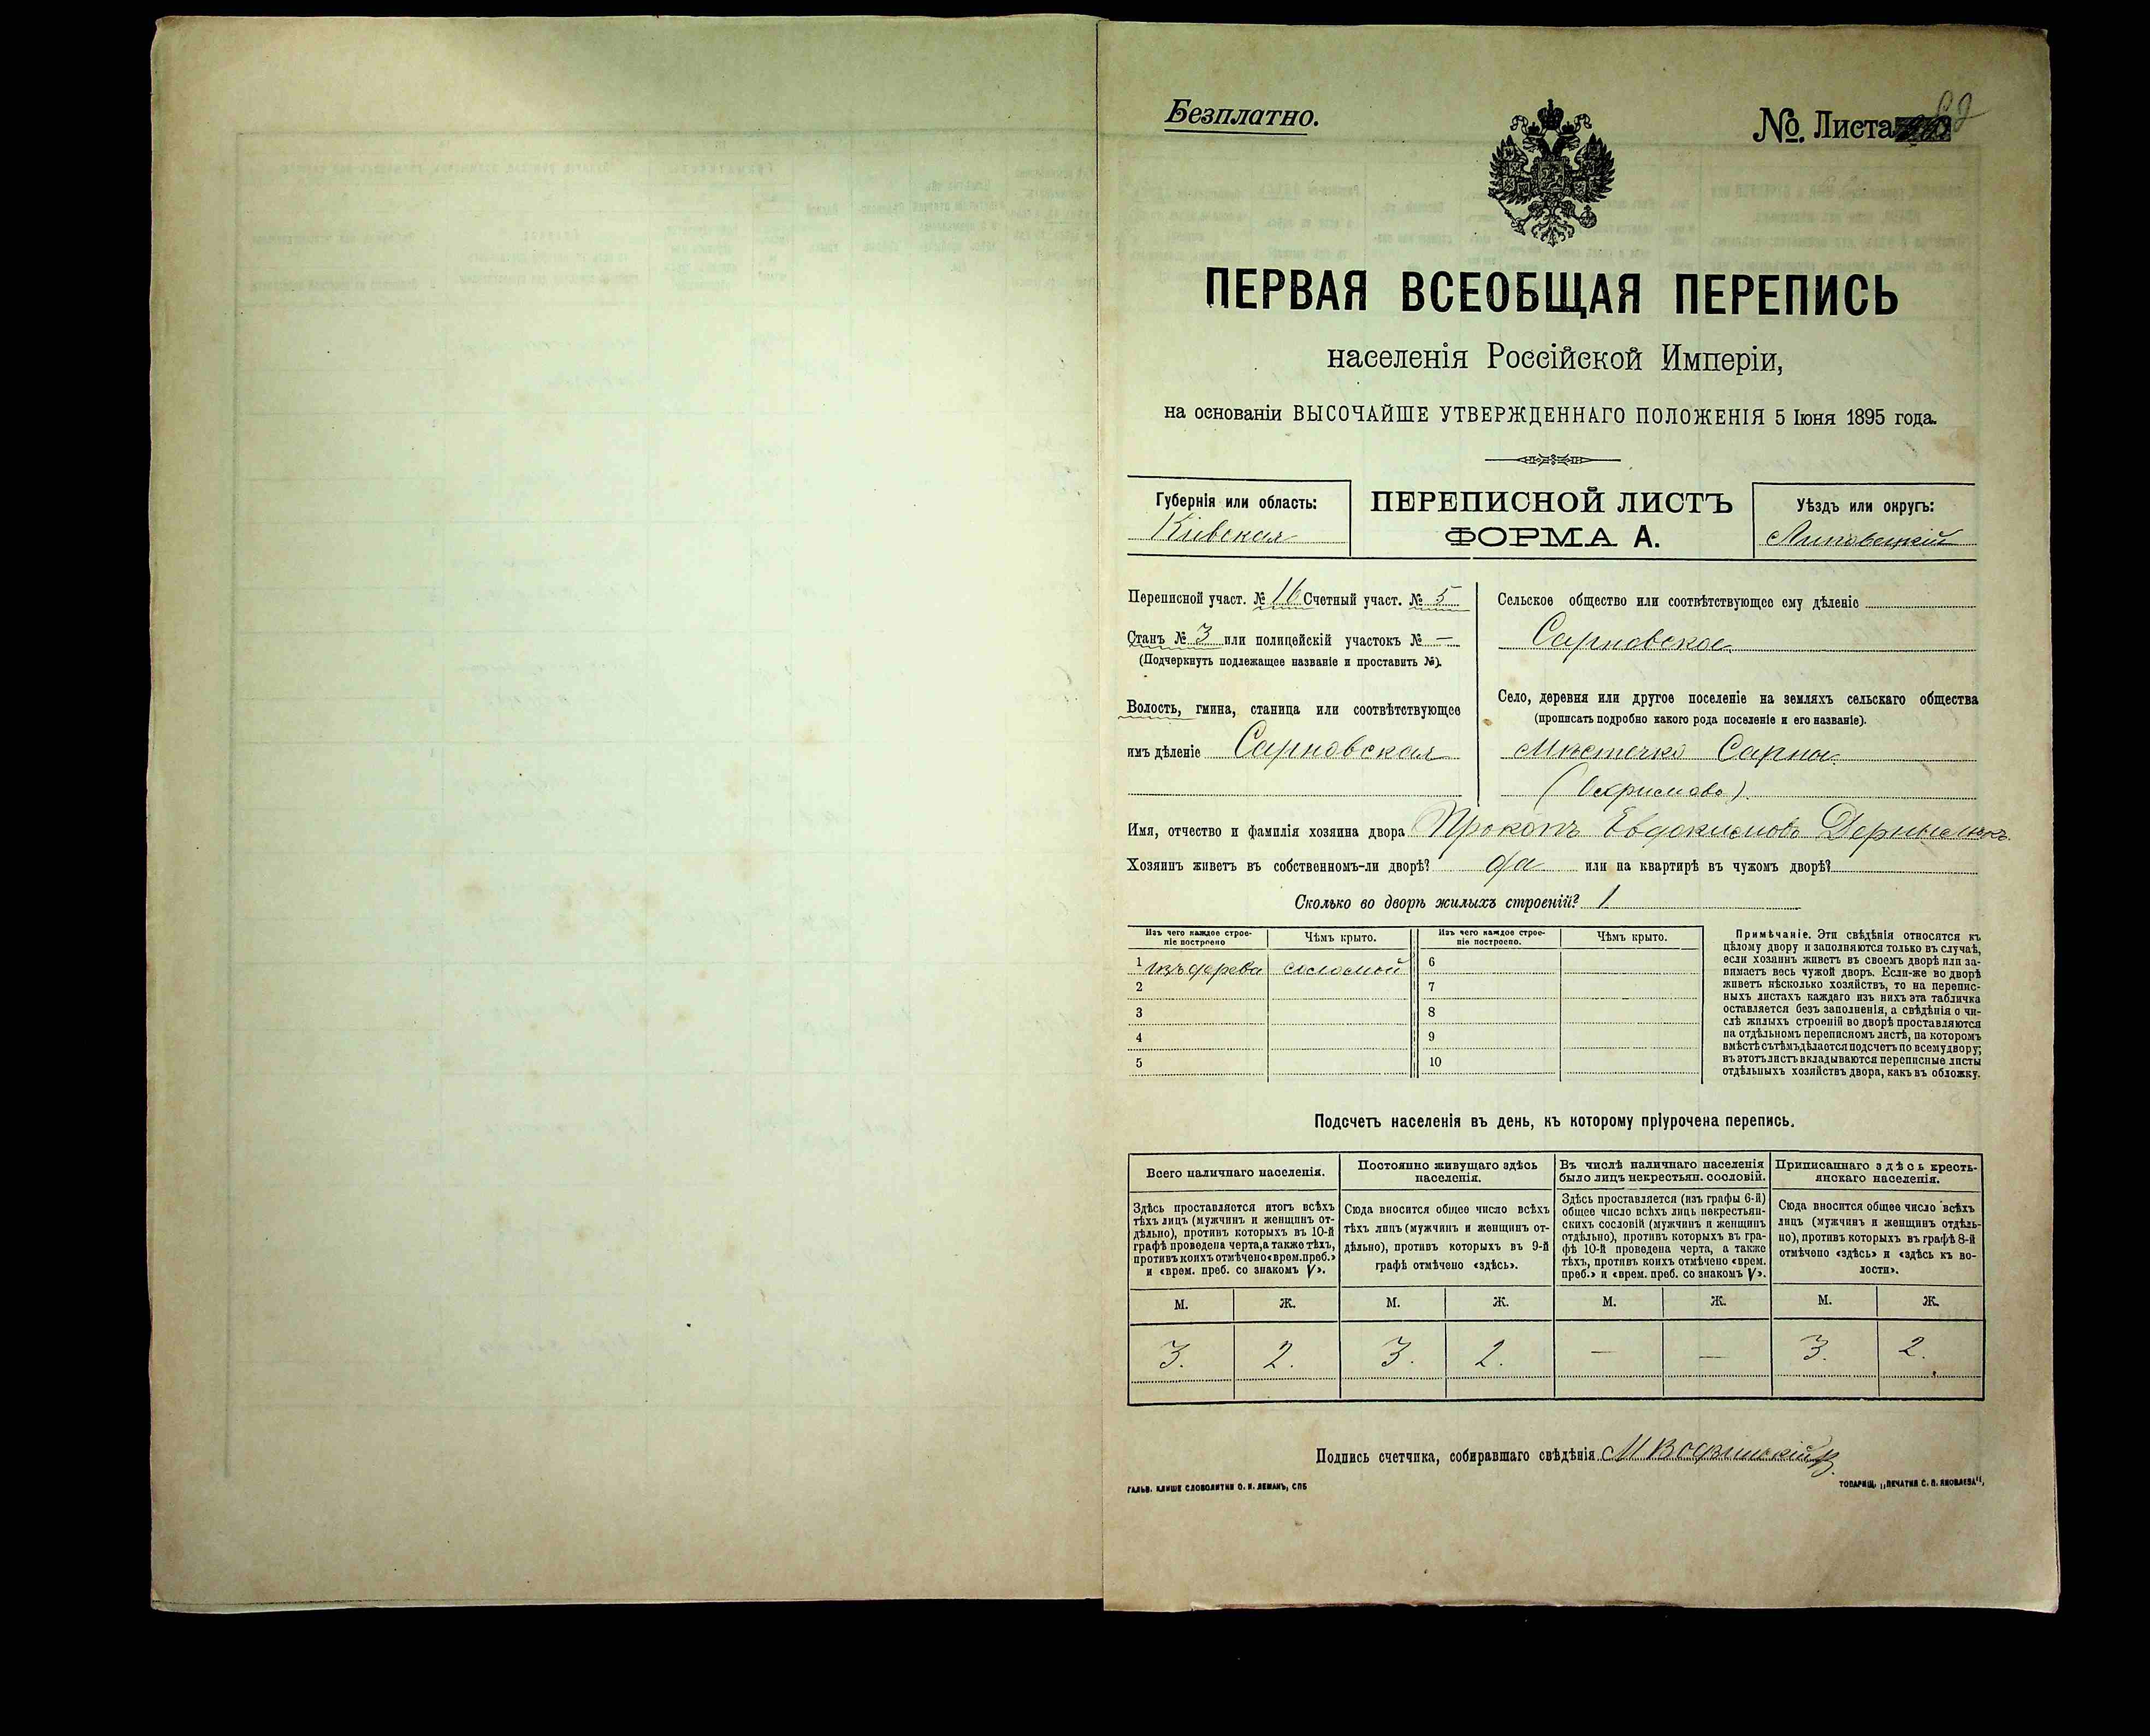 Безплатно.
№ Листа
ПЕРВАЯ ВСЕОБЩАЯ ПЕРЕПИСЬ
населенія Россійской Имперіи,
на основаніи ВЫСОЧАЙШЕ УТВЕРЖДЕННАГО ПОЛОЖЕНІЯ 5 Іюня 1895 года.
Губернія или область:
Кіевская
ПЕРЕПИСНОЙ ЛИСТЪ
ФОРМА А.
Уѣздъ или округъ:
Липовецкій
Переписной участ. № 16 Счетный участ. № 5
Станъ № 3 или полицейскій участокъ № —
(Подчеркнуть подлежащее названіе и проставить №).
Волость, гмина, станица или соотвѣтствующее
имъ дѣленіе Сарновская
Сельское общество или соотвѣтствующее ему дѣленіе
Сарновское
Село, деревня или другое поселеніе на земляхъ сельскаго общества
(прописать подробно какого рода поселеніе и его названіе).
Мѣстечко Сарны
Имя, отчество и фамилія хозяина двора Прокопъ Евдокимовъ
Хозяинъ живетъ въ собственномъ-ли дворѣ? да или на квартирѣ въ чужомъ дворѣ?
Сколько во дворѣ жилыхъ строеній? 1
Изъ чего каждое строе-
ніе построено
Чѣмъ крыто.
Изъ чего каждое строе-
ніе построено.
Чѣмъ крыто.
1 изъ дерева соломой 6
2 7
3 8
4 9
5 10
Примѣчаніе. Эти свѣдѣнія относятся къ
цѣлому двору и заполняются только въ случаѣ,
если хозяинъ живетъ въ своемъ дворѣ или за-
нимаетъ весь чужой дворъ. Если-же во дворѣ
живетъ нѣсколько хозяйствъ, то на перепис-
ныхъ листахъ каждаго изъ нихъ эта табличка
оставляется безъ заполненія, а свѣдѣнія о чи-
слѣ жилыхъ строеній во дворѣ проставляются
на отдѣльномъ переписномъ листѣ, на которомъ
вмѣстѣ съ тѣмъ дѣлается подсчетъ по всему двору;
въ этотъ листъ вкладываются переписные листы
отдѣльныхъ хозяйствъ двора, какъ въ обложку.
Подсчетъ населенія въ день, къ которому пріурочена перепись.
Всего наличнаго населенія.
Здѣсь проставляется итогъ всѣхъ
тѣхъ лицъ (мужчинъ и женщинъ от-
дѣльно), противъ которыхъ въ 10-й
графѣ проведена черта, а также тѣхъ,
противъ коихъ отмѣчено «врем. преб.»
и «врем. преб. со знакомъ V».
Постоянно живущаго здѣсь
населенія.
Сюда вносится общее число всѣхъ
тѣхъ лицъ (мужчинъ и женщинъ от-
дѣльно), противъ которыхъ въ 9-й
графѣ отмѣчено «здѣсь».
Въ числѣ наличнаго населенія
было лицъ некрестьян. сословій.
Здѣсь проставляется (изъ графы 6-й)
общее число всѣхъ лицъ некрестьян-
скихъ сословій (мужчинъ и женщинъ
отдѣльно), противъ которыхъ въ гра-
фѣ 10-й проведена черта, а также
тѣхъ, противъ коихъ отмѣчено «врем.
преб.» и «врем. преб. со знакомъ V».
Приписаннаго здѣсь кресть-
янскаго населенія.
Сюда вносится общее число всѣхъ
лицъ (мужчинъ и женщинъ отдѣль-
но), противъ которыхъ въ графѣ 8-й
отмѣчено «здѣсь» и «здѣсь къ во-
лости».
М. Ж. М. Ж. М. Ж. М. Ж.
3. 2. 3. 2. — — 3. 2.
Подпись счетчика, собиравшаго свѣдѣнія
ГАЛЬВ. КЛИШЕ СЛОВОЛИТНИ О. И. ЛЕМАНЪ, СПБ
ТОВАРИЩ. „ПЕЧАТНЯ С. П. ЯКОВЛЕВА“,